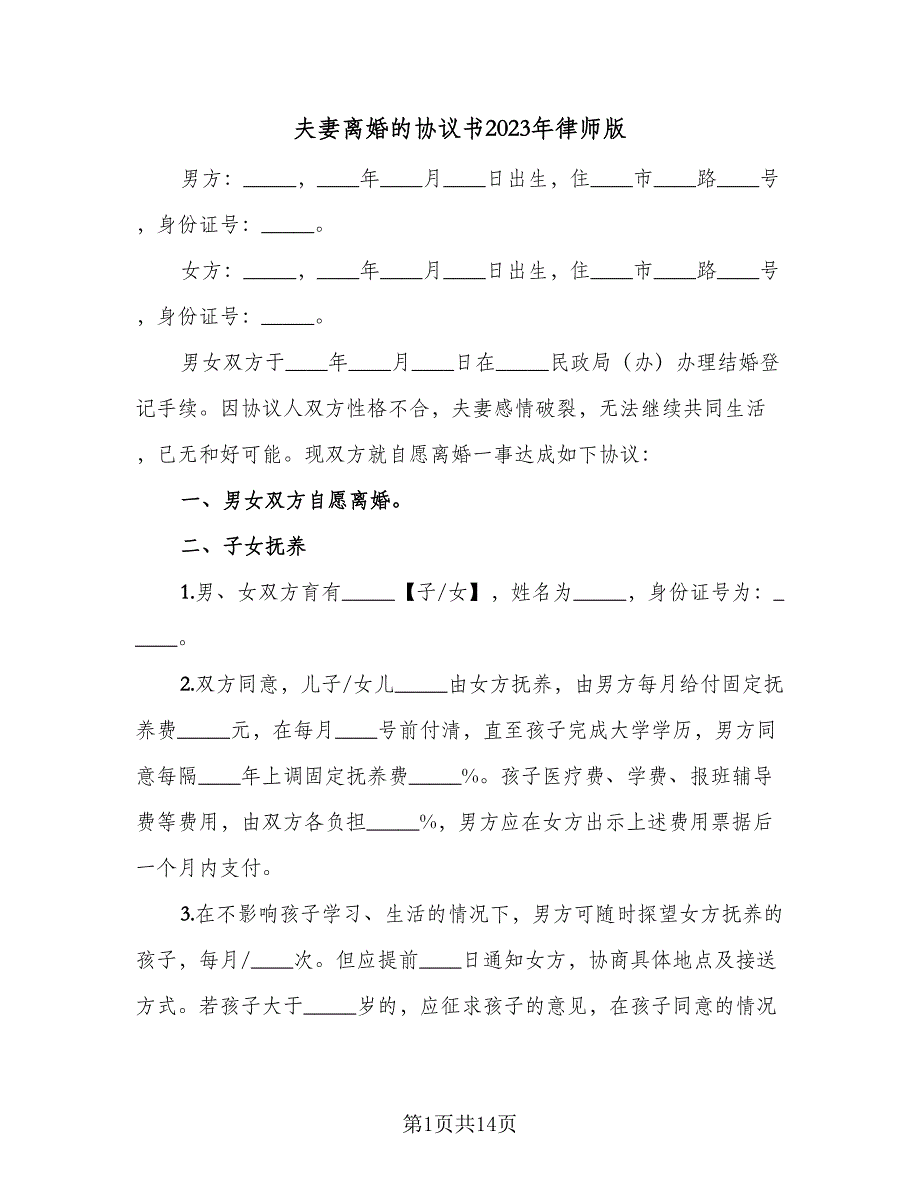 夫妻离婚的协议书2023年律师版
男方：_____，____年____月____日出生，住____市____路____号
，身份证号：_____。
女方：_____，____年____月____日出生，住____市____路____号
，身份证号：_____。
男女双方于____年____月____日在_____民政局（办）办理结婚登
记手续。因协议人双方性格不合，夫妻感情破裂，无法继续共同生活
，已无和好可能。现双方就自愿离婚一事达成如下协议：
一、男女双方自愿离婚。
二、子女抚养
1.男、女双方育有_____【子/女】，姓名为_____，身份证号为：_
____。
2.双方同意，儿子/女儿_____由女方抚养，由男方每月给付固定抚
养费_____元，在每月____号前付清，直至孩子完成大学学历，男方同
意每隔____年上调固定抚养费_____%。孩子医疗费、学费、报班辅导
费等费用，由双方各负担_____%，男方应在女方出示上述费用票据后
一个月内支付。
3.在不影响孩子学习、生活的情况下，男方可随时探望女方抚养的
孩子，每月/____次。但应提前____日通知女方，协商具体地点及接送
方式。若孩子大于_____岁的，应征求孩子的意见，在孩子同意的情况
第1页共14页